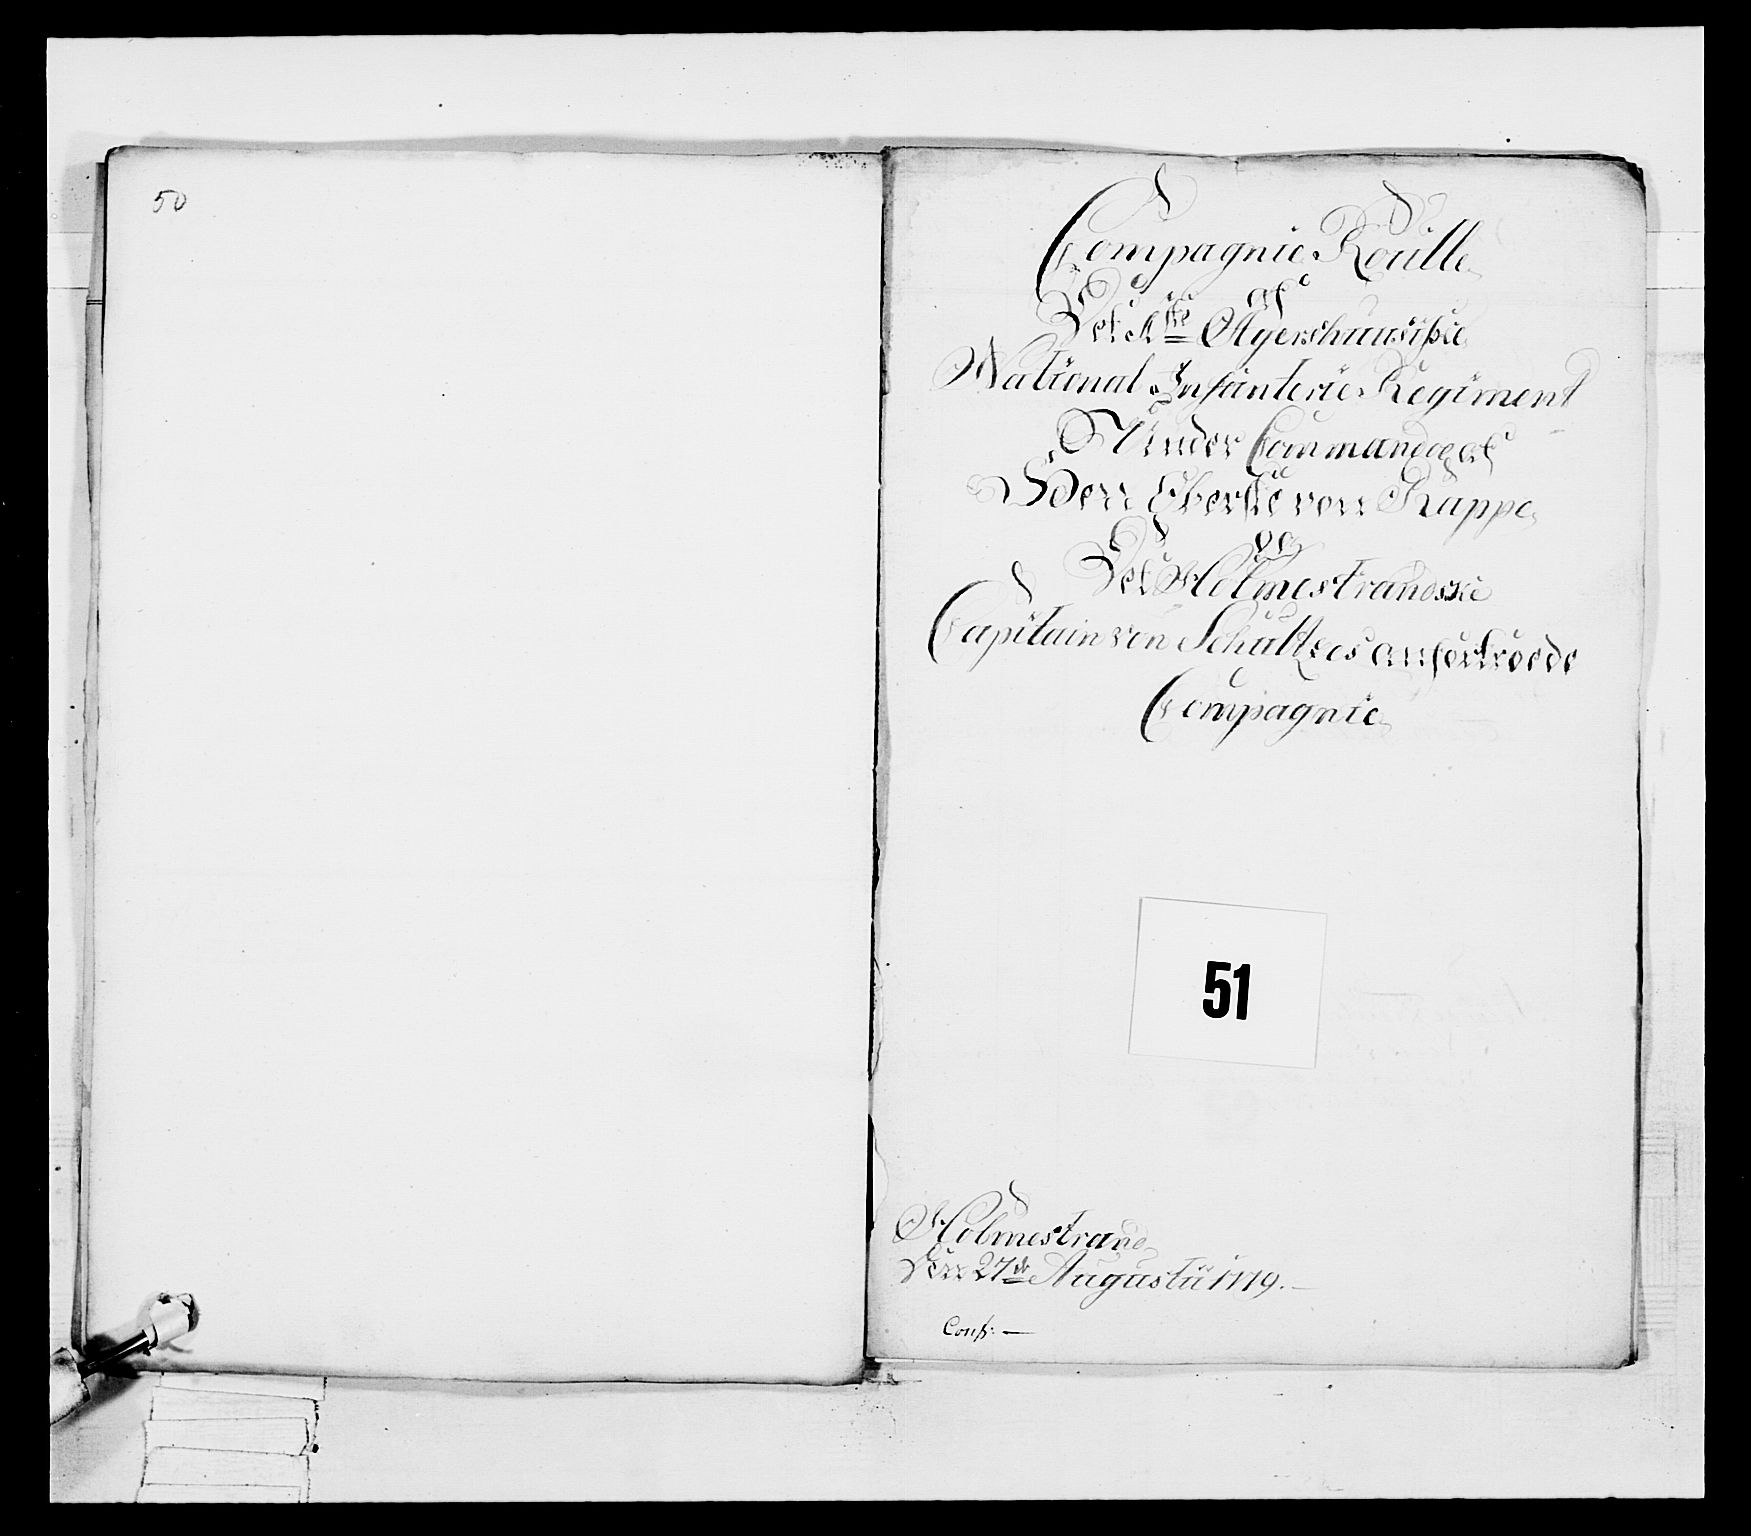 50
Compagnie Roulle
af
Det 2de Agershuusiske
National Infanterie Regiment
Under Commando af
Herr Oberste von Kappe
og
Det Holmestrandske
Capitain von Schultzes anfortroede
Compagnie
51
Holmestrand
Den 27de Augustii 1779.
Conf: —